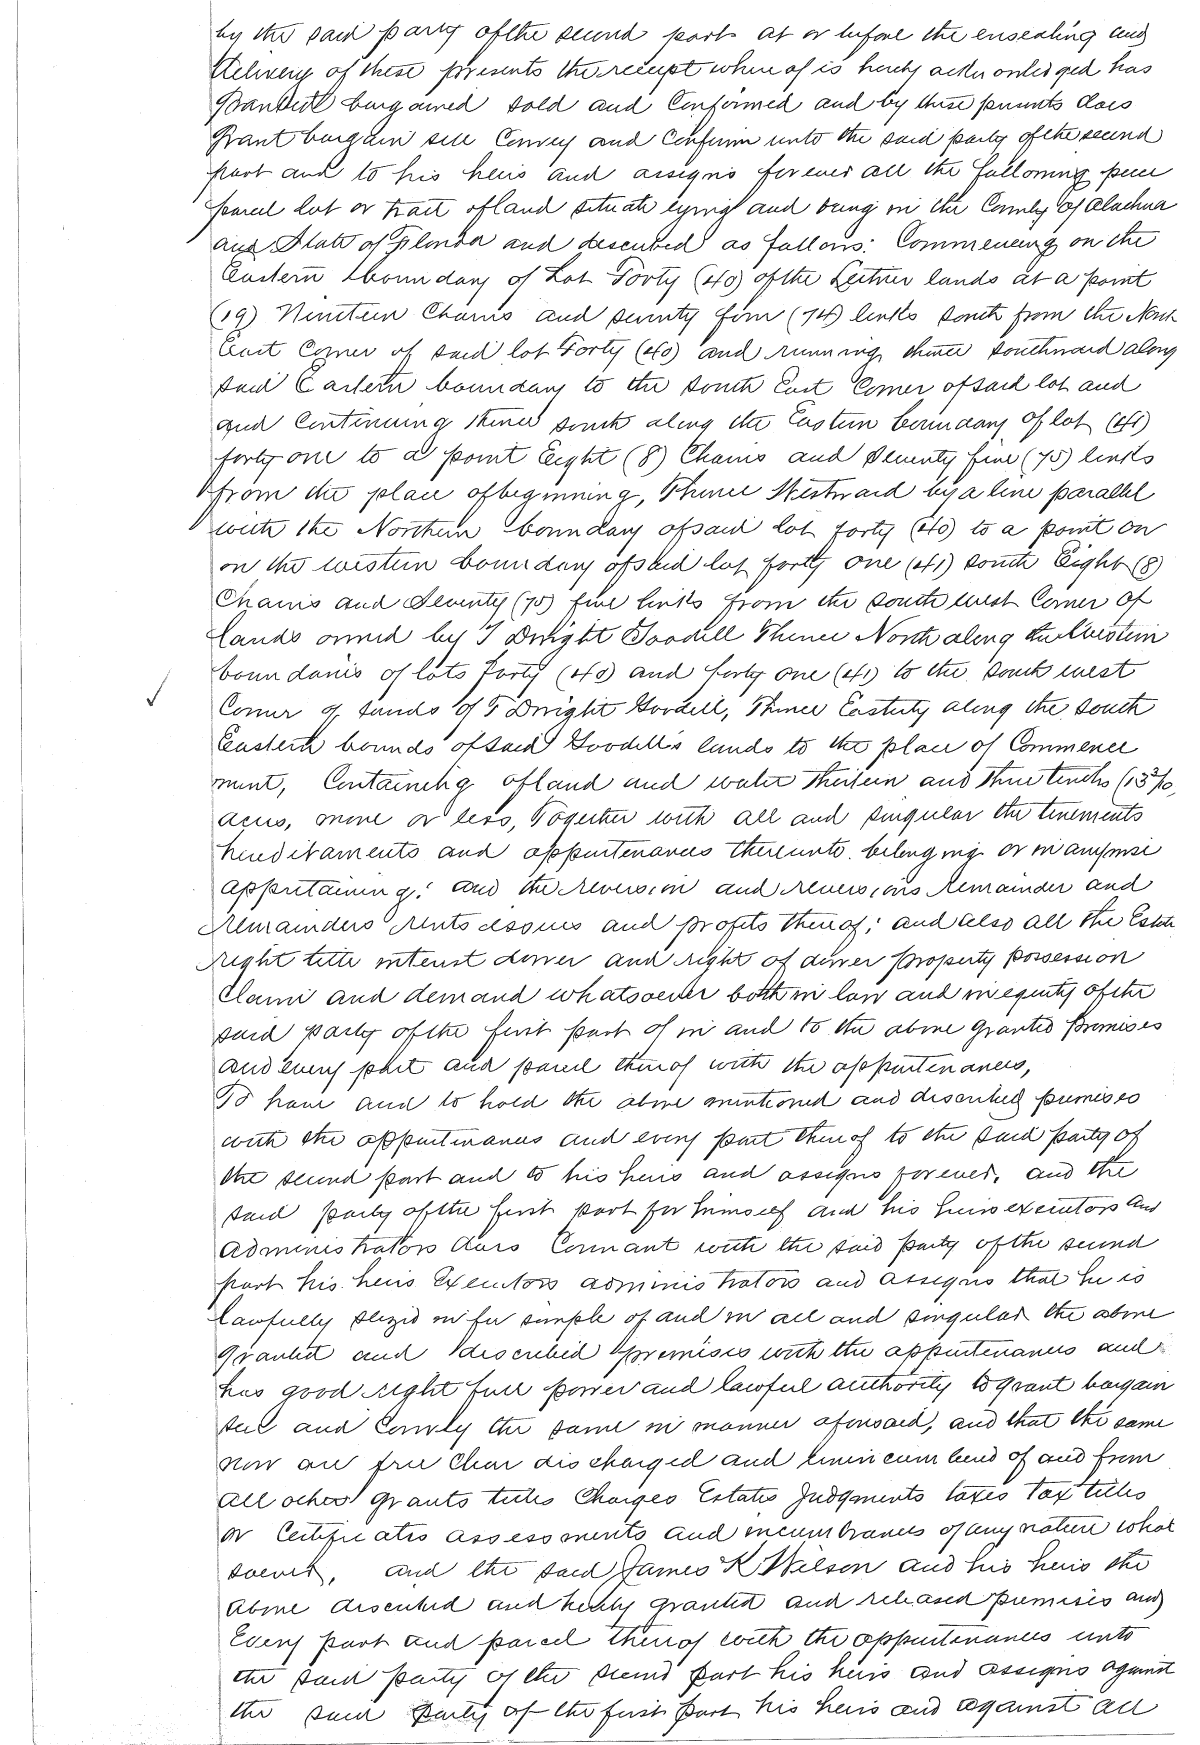 by the said party of the second part at or before the ensealing and
delivery of these presents the receipt where of is hereby acknowledged has
Granted bargained sold and Confirmed and by these presents does
Grant bargain sell Convey and Confirm unto the said party of the second
part and to his heirs and assigns forever all the following piece
parcel lot or tract of land situate lying and being in the County of Alachua
and State of Florida and described as follows: Commencing on the
Eastern boundary of Lot Forty (40) of the Leitner lands at a point
(19) Nineteen Chains and seventy four (74) links south from the North
East Corner of said lot Forty (40) and running thence southward along
said Eastern boundary to the South East Corner of said lot and
and Continuing thence south along the Eastern boundary of lot (41)
forty one to a point Eight (8) Chains and Seventy five (75) links
from the place of beginning, Thence Westward by a line parallel
with the Northern boundary of said lot forty (40) to a point on
on the western boundary of said lot forty one (41) south Eight (8)
Chains and Seventy (75) five links from the south west Corner of
lands owned by T Dwight Goodell Thence North along the Western
boundaries of lots Forty (40) and forty one (41) to the south west
Corner of lands of T Dwight Goodell, Thence Easterly along the south
Eastern bounds of said Goodell's lands to the place of Commence
ment, Containing of land and water thirteen and three tenths (13 3/10)
acres, more or less, Together with all and singular the tenements
hereditaments and appurtenances thereunto belonging or in anywise
appertaining: and the reversion and reversions remainder and
remainders rents issues and profits thereof; and also all the Estate
right title interest dower and right of dower property possession
Claim and demand whatsoever both in law and in equity of the
said party of the first part of in and to the above granted premises
and every part and parcel thereof with the appurtenances,
To have and to hold the above mentioned and described premises
with the appurtenances and every part thereof to the said party of
the second part and to his heirs and assigns forever. and the
said party of the first part for himself and his heirs executors and
Administrators does Covenant with the said party of the second
part his heirs Executors administrators and assigns that he is
lawfully seized in fee simple of and in all and singular the above
granted and described premises with the appurtenances and
has good right full power and lawful authority to grant bargain
sell and Convey the same in manner aforesaid, and that the same
now are free Clear discharged and unincumbered of and from
all other grants titles Charges Estates Judgments taxes tax titles
or Certificates assessments and incumbrances of any nature what
soever, and the said James K Wilson and his heirs the
above described and hereby granted and released premises and
Every part and parcel thereof with the appurtenances unto
the said party of the second part his heirs and assigns against
the said party of the first part his heirs and against all